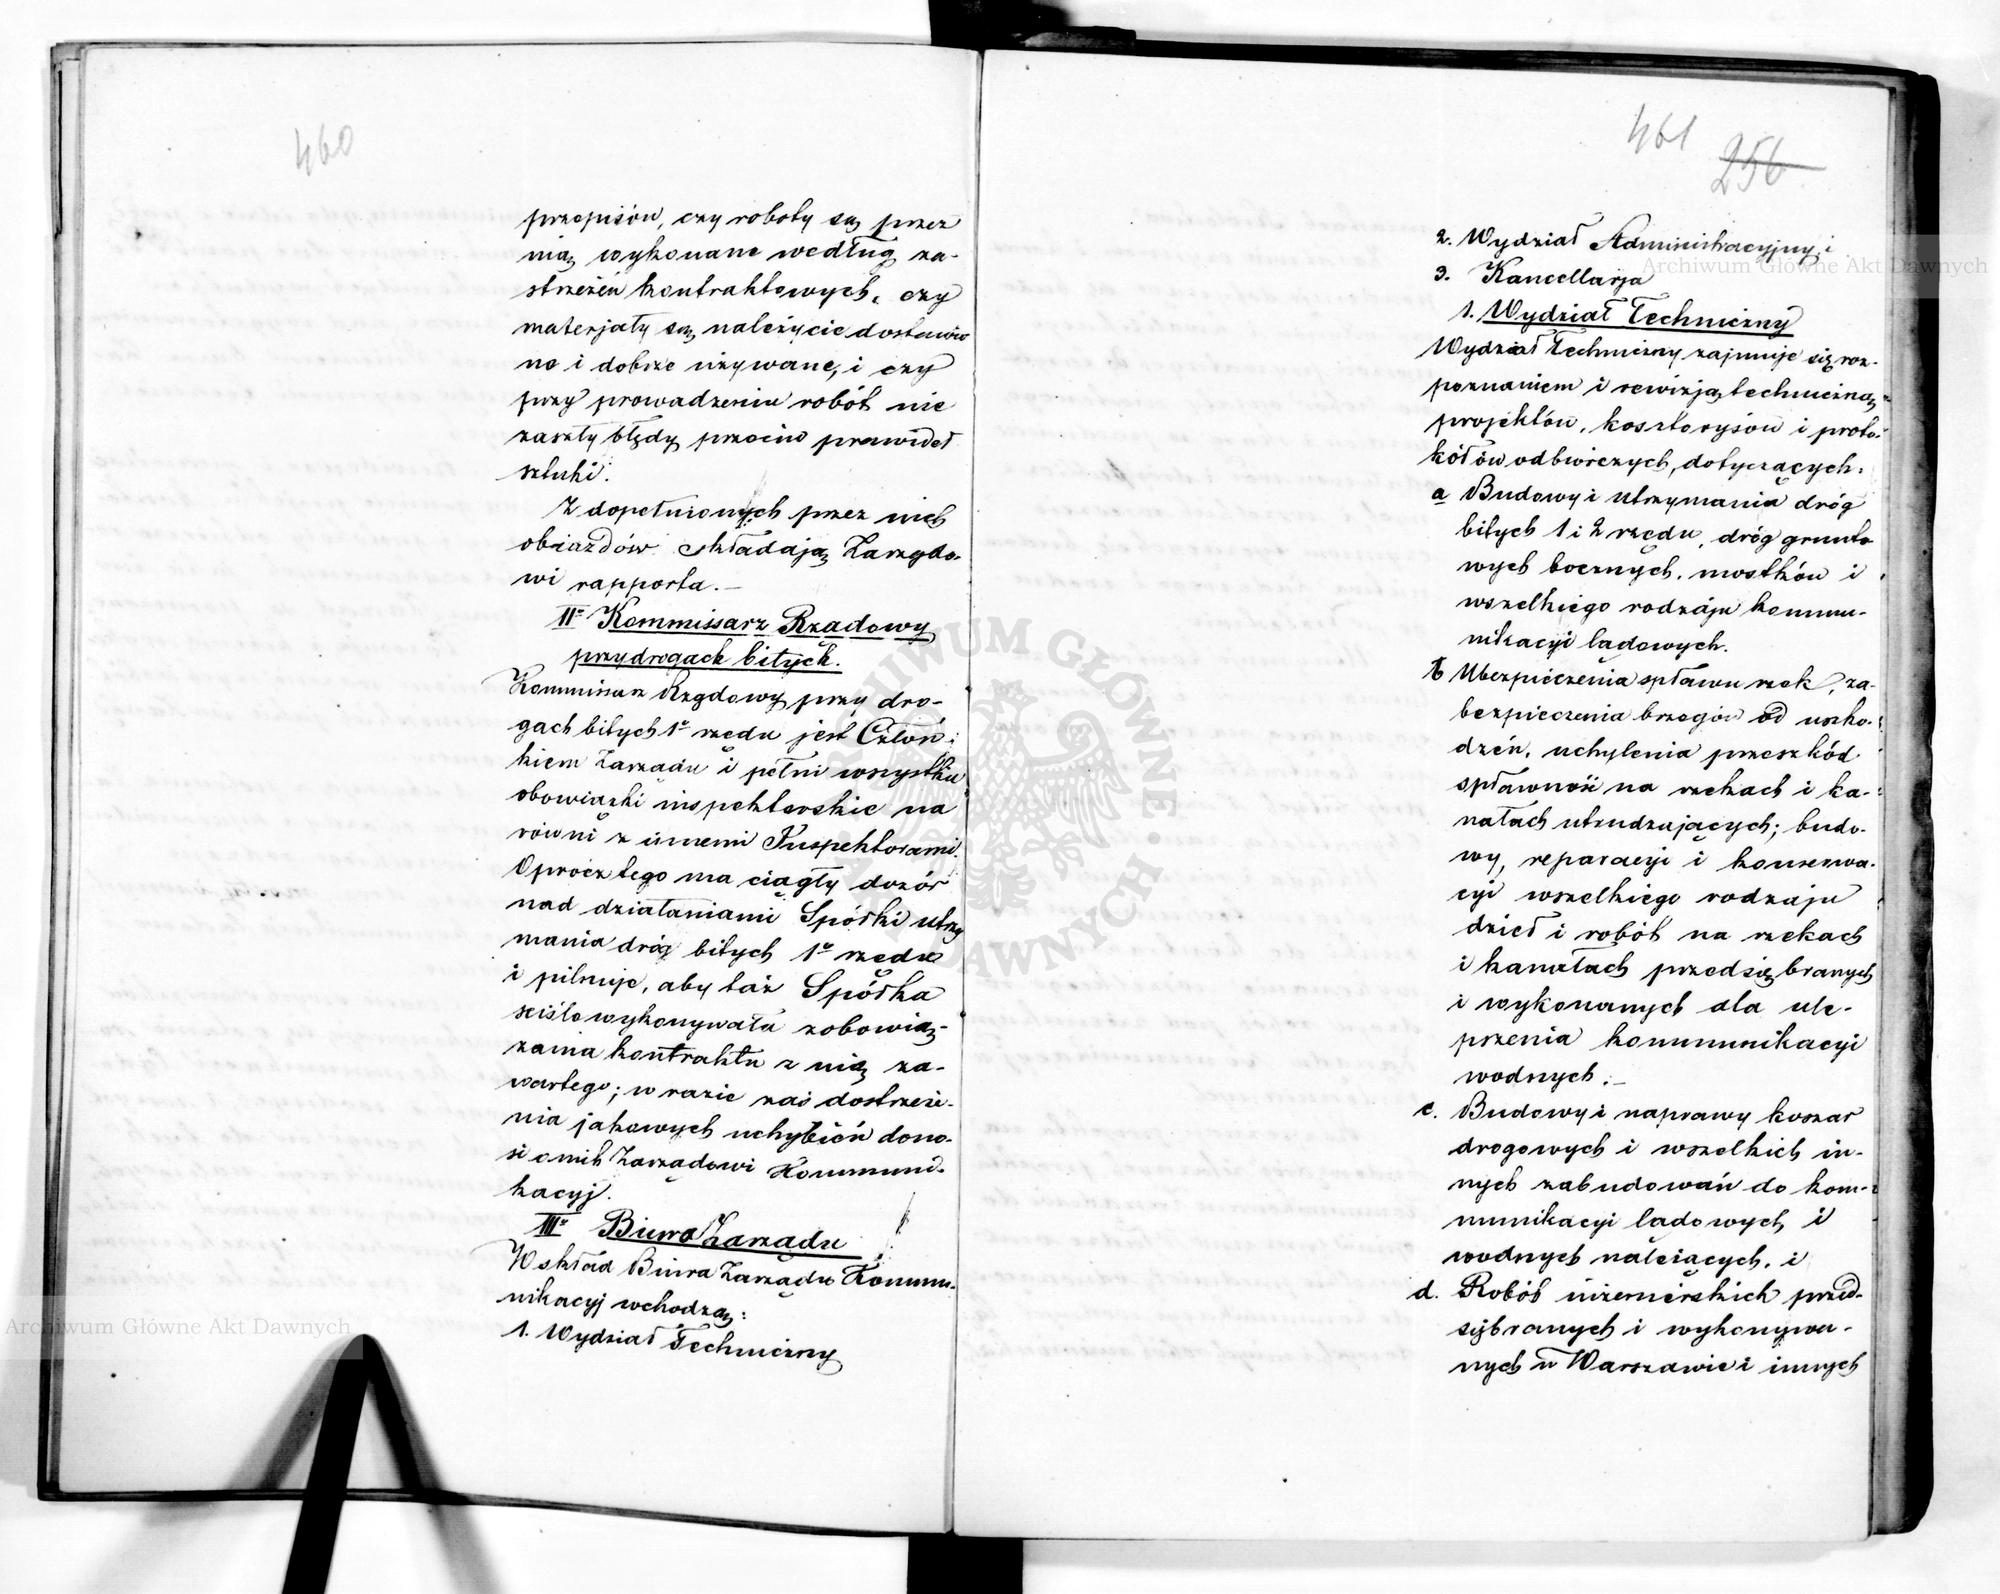 460
przepisów, czy roboty są przez
nią wykonane według za-
strzeżeń kontraktowych, czy
materjały są należycie dostawio
ne i dobrze używane, i czy
przy prowadzeniu robót nie
zaszły błędy przeciw prawideł
sztuki.
Z dopełnionych przez nich
objazdów składają Zarządo-
wi rapporta. —
II° Kommissarz Rządowy
przy drogach bitych.
Kommissarz Rządowy przy dro-
gach bitych 1° rzędu jest Człon-
kiem Zarządu i pełni wszystkie
obowiązki inspektorskie na
równi z innemi Inspektorami.
Oprócz tego ma ciągły dozór
nad działaniami Spółki utrzy
mania dróg bitych 1° rzędu
i pilnuje, aby taż Spółka
ściśle wykonywała zobowią-
zania kontraktu z nią za-
wartego; w razie zaś dostrzeże-
nia jakowych uchybień dono-
si o nich Zarządowi Kommuni-
kacyj.
III° Biuro Zarządu
W skład Biura Zarządu Kommu-
nikacyj wchodzą:
1. Wydział Techniczny
461
256
2. Wydział Administracyjny, i
3. Kancellarja
1. Wydział Techniczny
Wydział Techniczny zajmuje się roz-
poznaniem i rewizją techniczną
projektów, kosztorysów i proto-
kółów odbiorczych, dotyczących:
a Budowy i utrzymania dróg
bitych 1 i 2 rzędu, dróg grunto
wych bocznych, mostków i
wszelkiego rodzaju kommu-
nikacyi lądowych.
b Ubezpieczenia spławu rzek, za-
bezpieczenia brzegów od uszko-
dzeń, uchylenia przeszkód
spławność na rzekach i ka-
nałach utrudzających; budo-
wy, reparacyi i konserwa-
cyi wszelkiego rodzaju
dzieł i robót na rzekach
i kanałach przedsiębranych
i wykonanych dla ule-
pszenia kommunikacyi
wodnych. —
c. Budowy i naprawy koszar
drogowych i wszelkich in-
nych zabudowań do kom-
munikacyi lądowych i
wodnych należących, i
d. Robót inżenierskich przed-
siębranych i wykonywa-
nych w Warszawie i innych
Archiwum Główne Akt Dawnych
Archiwum Główne Akt Dawnych
ARCHIWUM GŁÓWNE AKT DAWNYCH